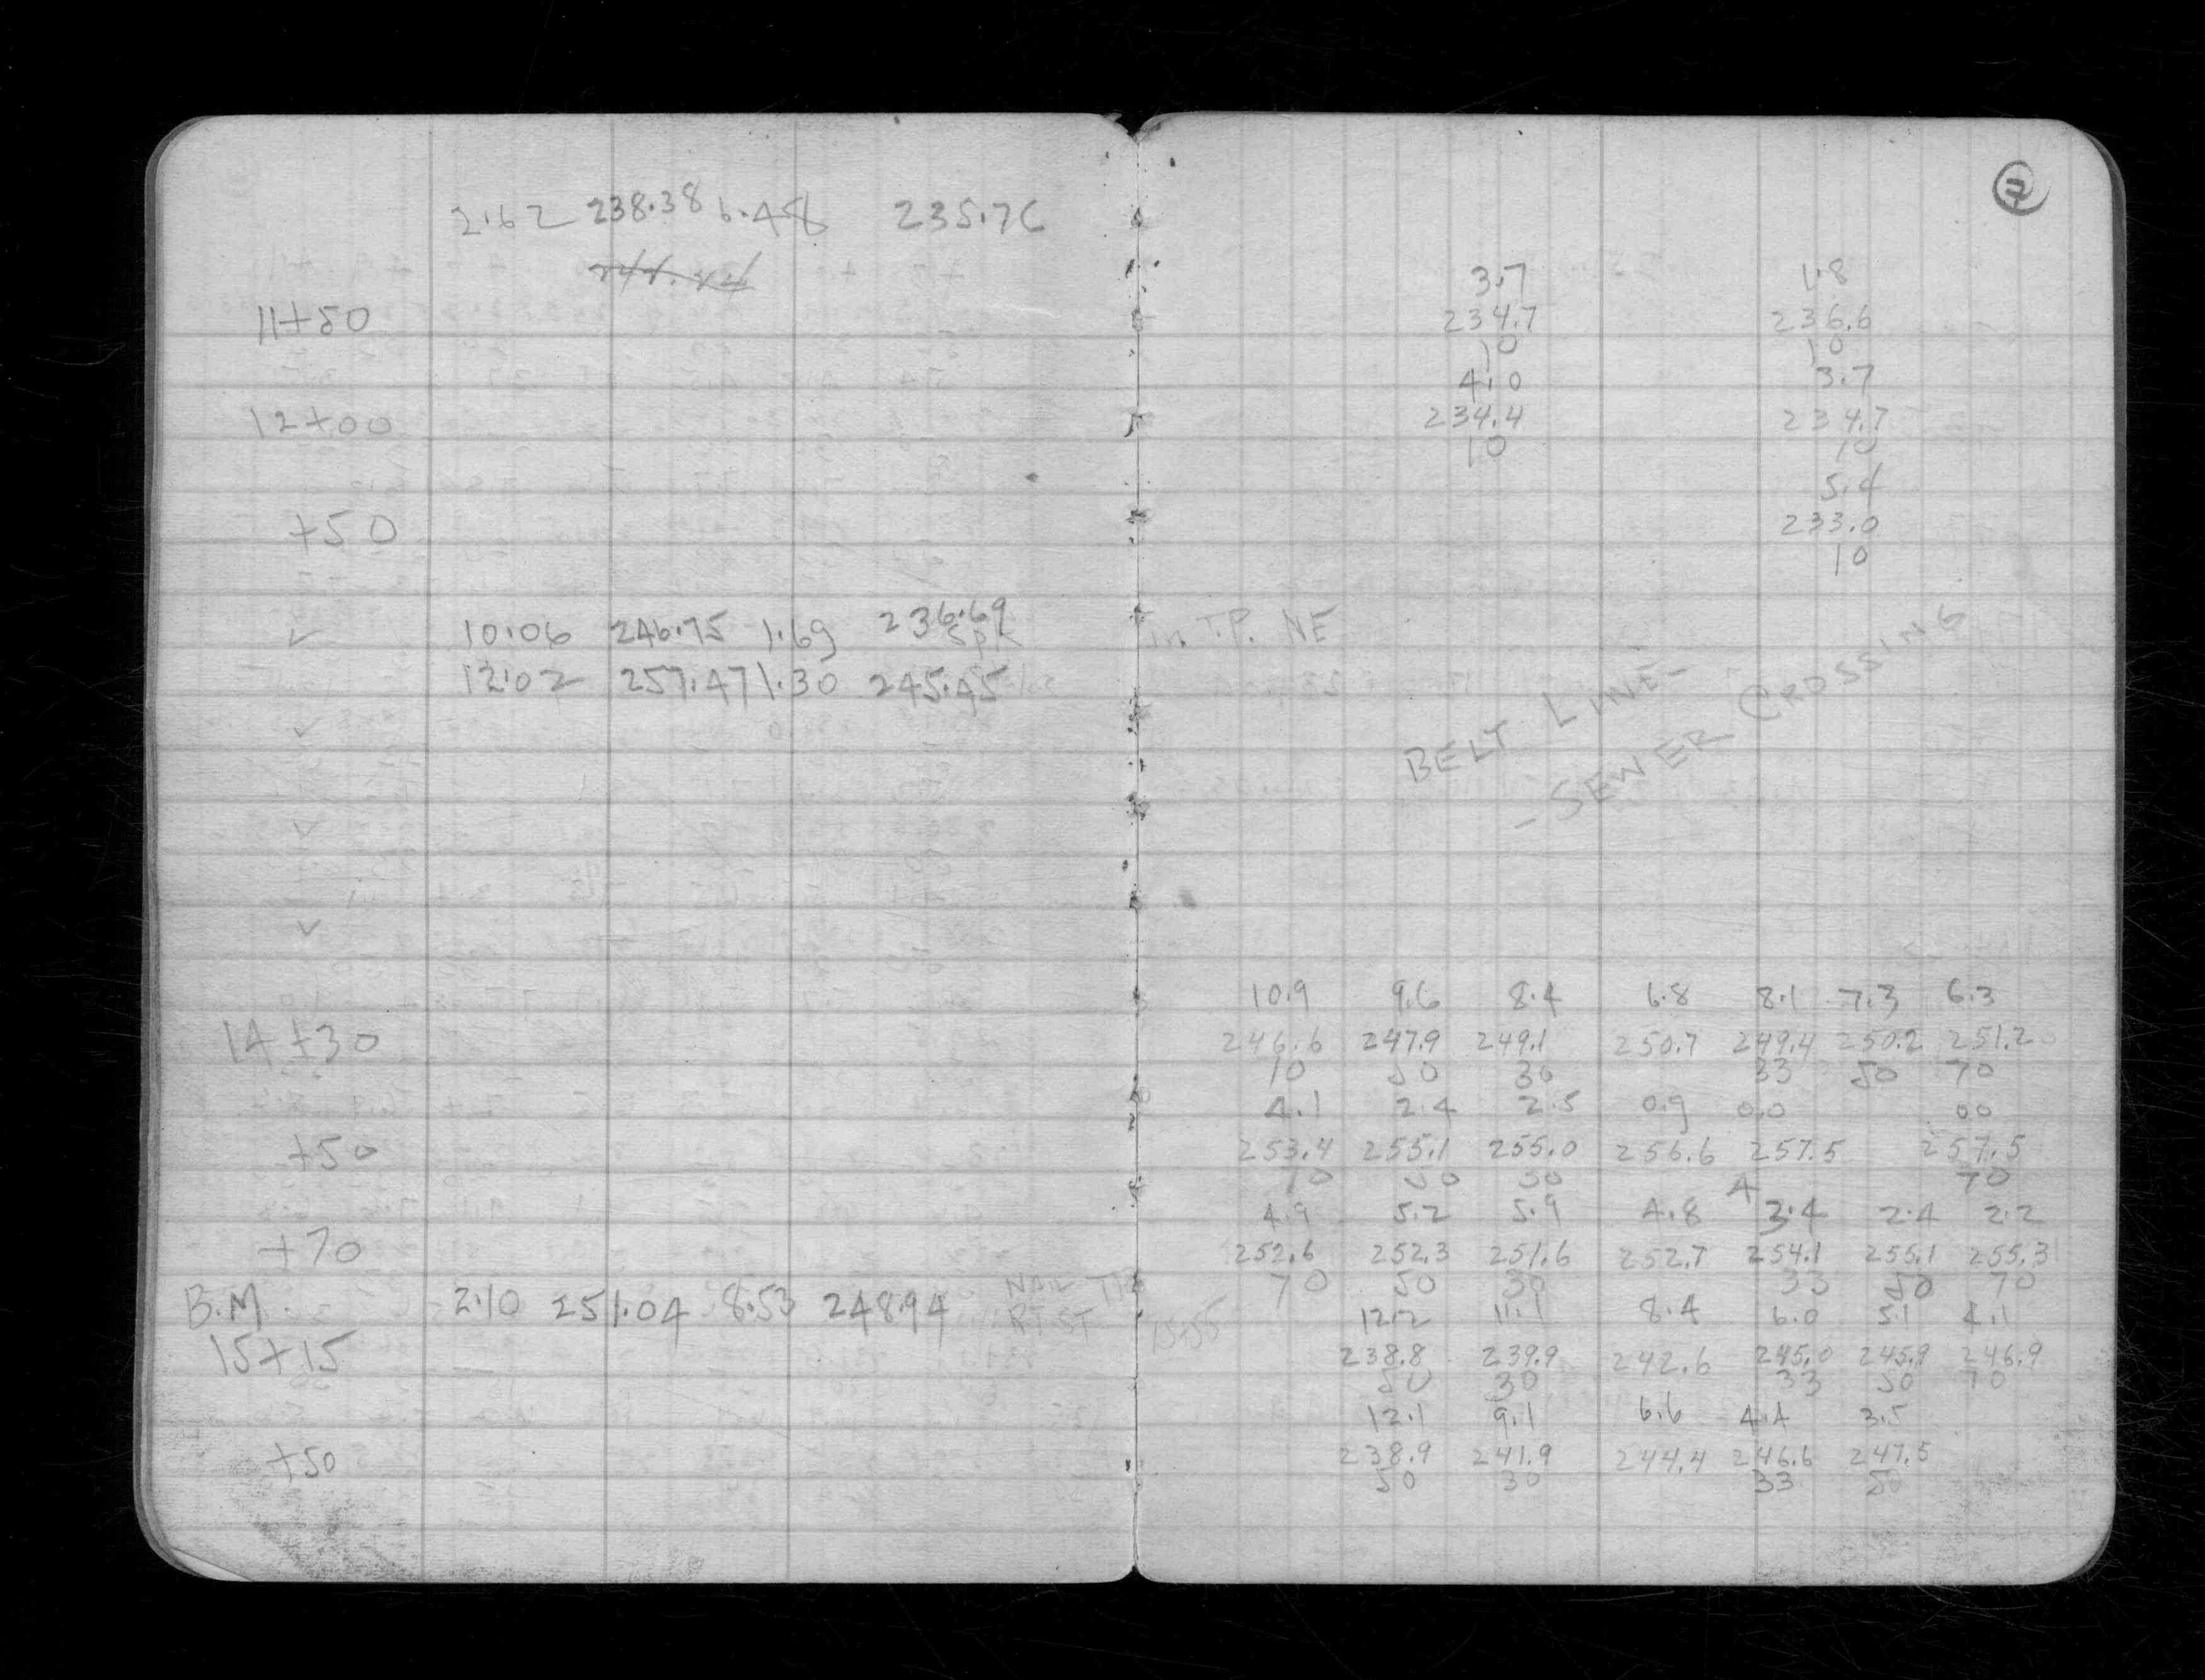 7
2.62 238.38 6.48 235.76
3.7 1.8
11+50 234.7 236.6
10 10
4.0 3.7
12+00 234.4 234.7
10 10
5.4
+50 233.0
10
✓ 10.06 246.75 1.69 236.69 in T.P. NE
12.02 257.47 1.30 245.45
✓
BELT LINE-
-SEWER CROSSING
✓
✓
10.9 9.6 8.4 6.8 8.1 7.3 6.3
14+30 246.6 247.9 249.1 250.7 249.4 250.2 251.2
10 50 30 33 50 70
4.1 2.4 2.5 0.9 0.0 00
+50 253.4 255.1 255.0 256.6 257.5 257.5
70 50 30 4 70
4.9 5.2 5.9 4.8 3.4 2.4 2.2
+70 252.6 252.3 251.6 252.7 254.1 255.1 255.3
70 50 30 33 50 70
B.M. 2.10 251.04 8.53 248.94 NAIL
RT ST 15+55
12.2 11.1 8.4 6.0 5.1 4.1
15+15 238.8 239.9 242.6 245.0 245.9 246.9
50 30 33 50 70
12.1 9.1 6.6 4.4 3.5
+50 238.9 241.9 244.4 246.6 247.5
50 30 33 50